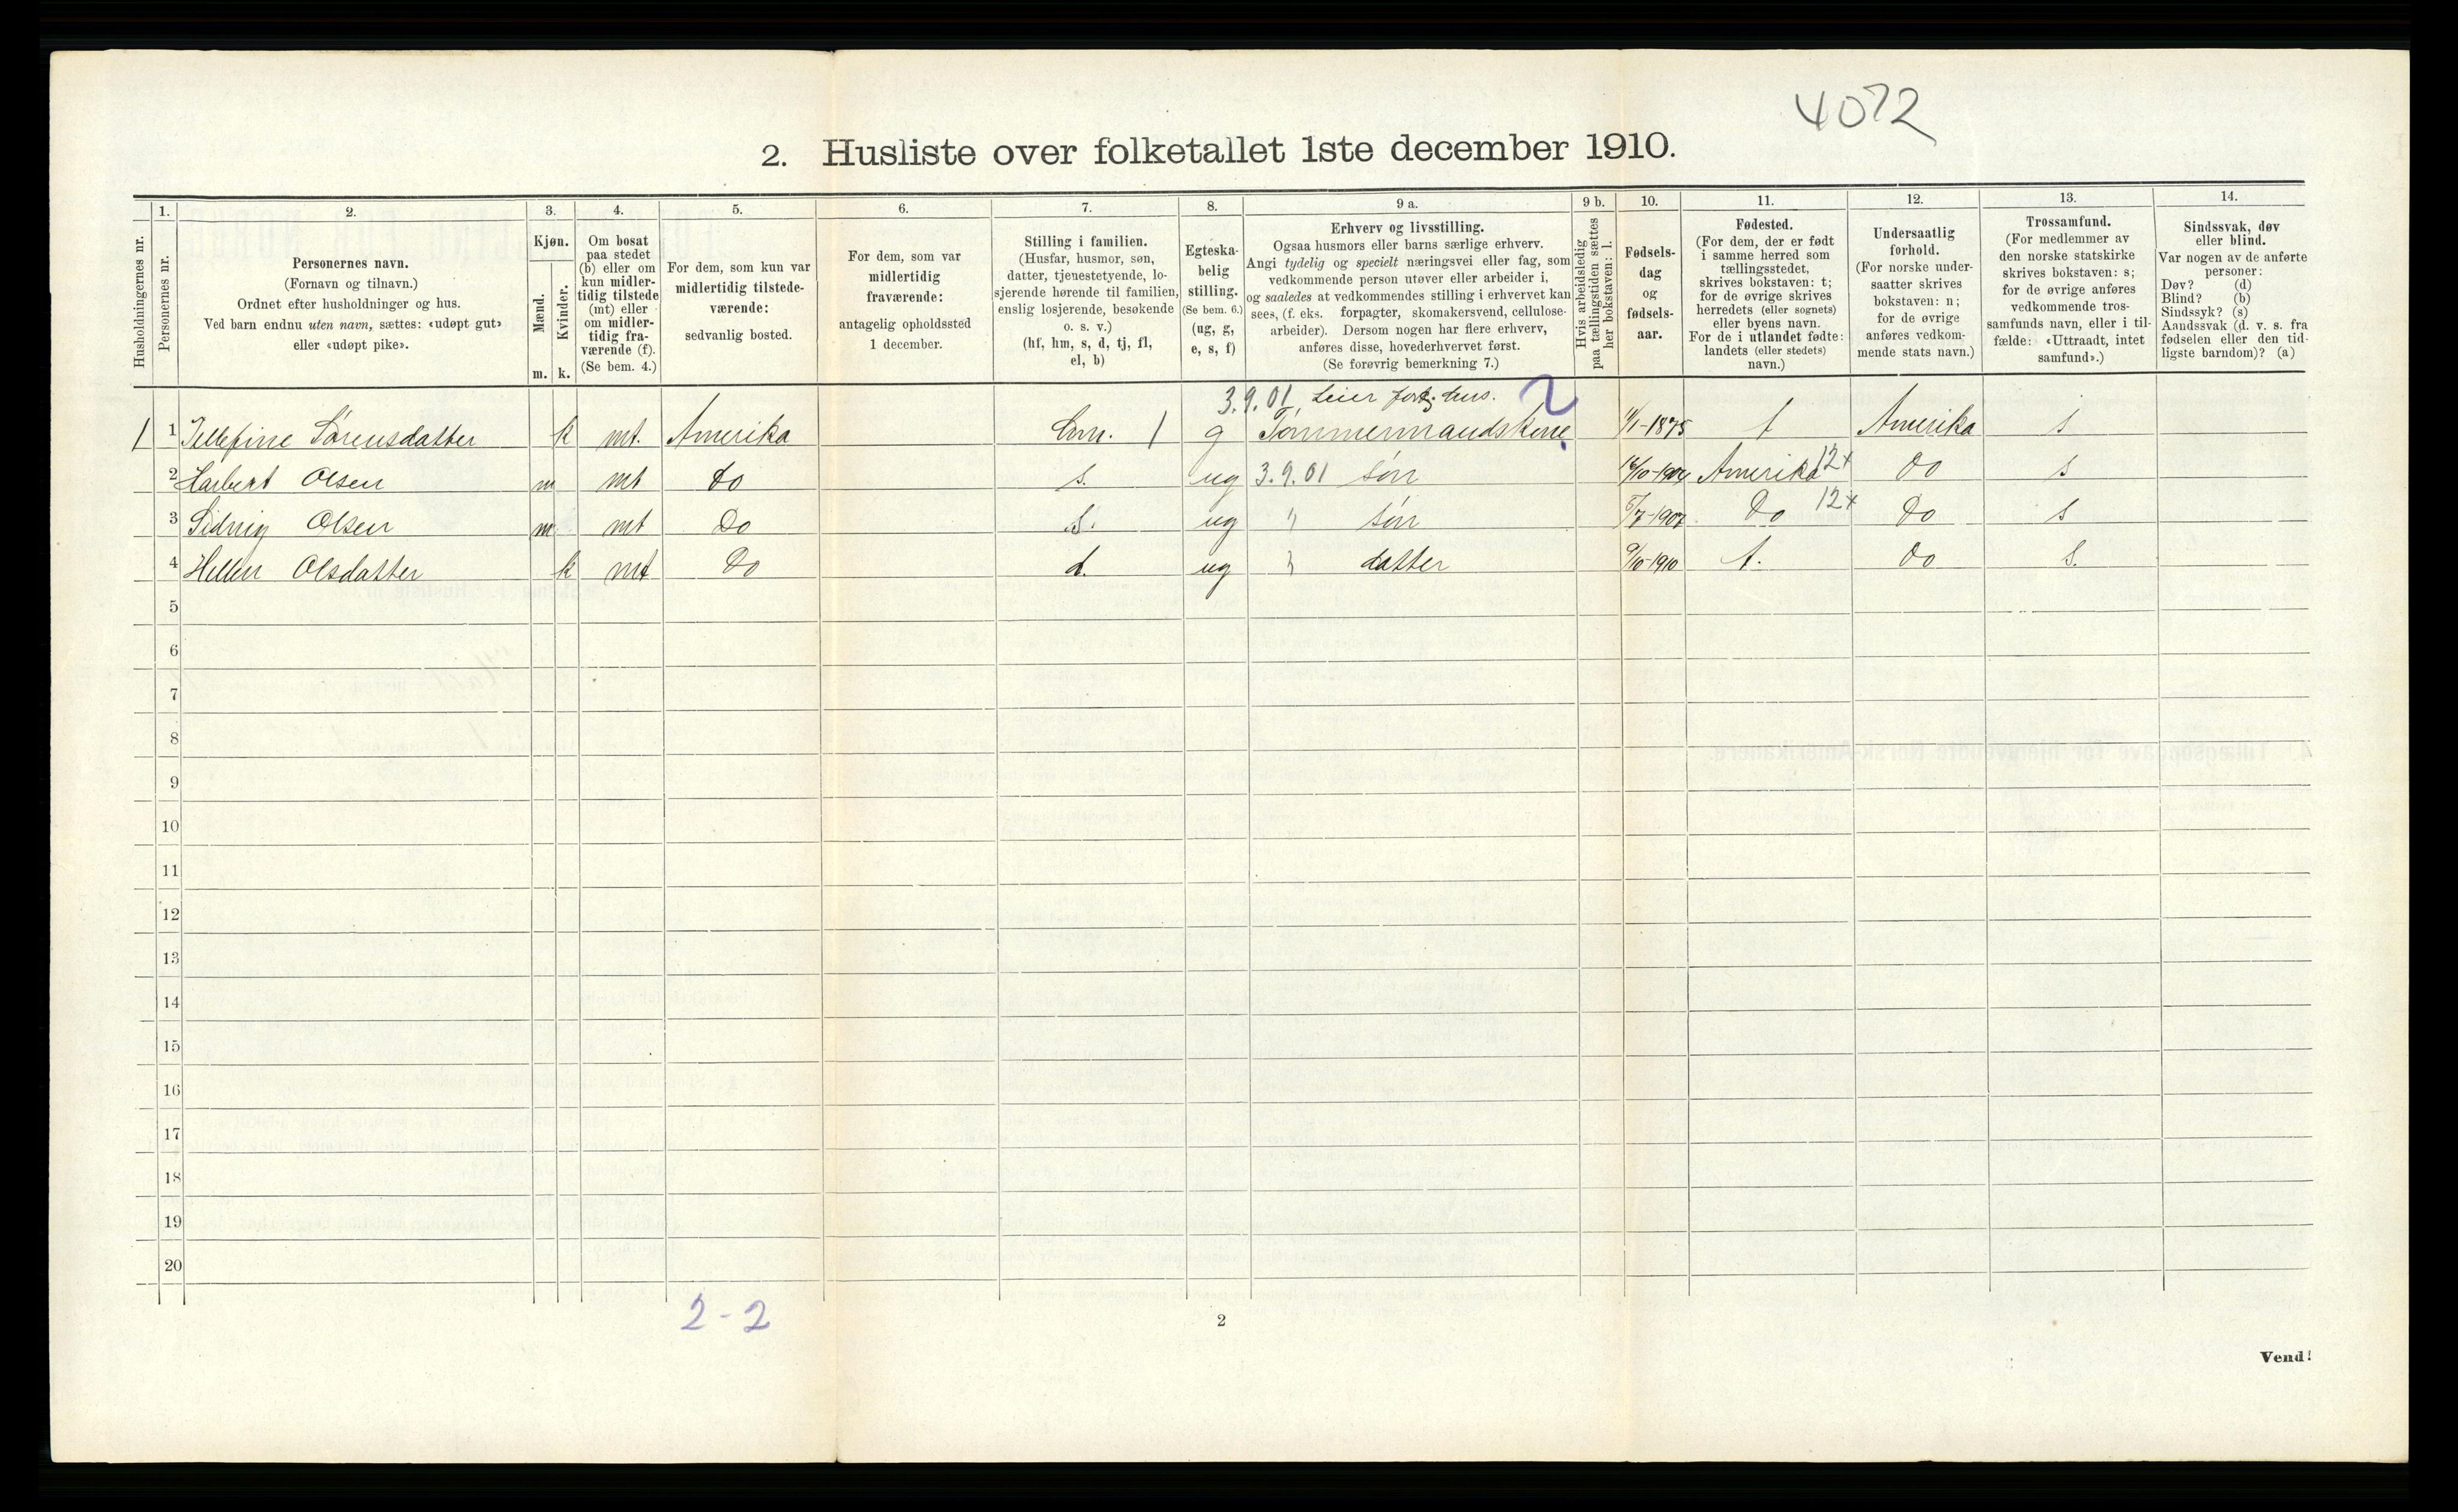 4072
2. Husliste over folketallet 1ste december 1910.
Husholdningernes nr.
1.
Personernes nr.
2.
Personernes navn.
(Fornavn og tilnavn.)
Ordnet efter husholdninger og hus.
Ved barn endnu uten navn, sættes: «udøpt gut»
eller «udøpt pike».
3.
Kjøn.
Mænd.
Kvinder.
m. k.
4.
Om bosat
paa stedet
(b) eller om
kun midler-
tidig tilstede
(mt) eller
om midler-
tidig fra-
værende (f).
(Se bem. 4.)
5.
For dem, som kun var
midlertidig tilstede-
værende:
sedvanlig bosted.
6.
For dem, som var
midlertidig
fraværende:
antagelig opholdssted
1 december.
7.
Stilling i familien.
(Husfar, husmor, søn,
datter, tjenestetyende, lo-
sjerende hørende til familien,
enslig losjerende, besøkende
o. s. v.)
(hf, hm, s, d, tj, fl,
el, b)
8.
Egteska-
belig
stilling.
(Se bem. 6.)
(ug, g,
e, s, f)
9 a.
Erhverv og livsstilling.
Ogsaa husmors eller barns særlige erhverv.
Angi tydelig og specielt næringsvei eller fag, som
vedkommende person utøver eller arbeider i,
og saaledes at vedkommendes stilling i erhvervet kan
sees, (f. eks. forpagter, skomakersvend, cellulose-
arbeider). Dersom nogen har flere erhverv,
anføres disse, hovederhvervet først.
(Se forøvrig bemerkning 7.)
9 b.
Hvis arbeidsledig
paa tællingstiden sættes
her bokstaven: l.
10.
Fødsels-
dag
og
fødsels-
aar.
11.
Fødested.
(For dem, der er født
i samme herred som
tællingsstedet,
skrives bokstaven: t;
for de øvrige skrives
herredets (eller sognets)
eller byens navn.
For de i utlandet fødte:
landets (eller stedets)
navn.)
12.
Undersaatlig
forhold.
(For norske under-
saatter skrives
bokstaven: n;
for de øvrige
anføres vedkom-
mende stats navn.)
13.
Trossamfund.
(For medlemmer av
den norske statskirke
skrives bokstaven: s;
for de øvrige anføres
vedkommende tros-
samfunds navn, eller i til-
fælde: «Uttraadt, intet
samfund».)
14.
Sindssvak, døv
eller blind.
Var nogen av de anførte
personer:
Døv? (d)
Blind? (b)
Sindssyk? (s)
Aandssvak (d. v. s. fra
fødselen eller den tid-
ligste barndom)? (a)
3.9.01 Leier hus. 2
1 1 Sørensdatter k mt. Amerika 1 g Tømmermandskone 1875 t Amerika s
2 Harbert Olsen m mt do s. ug 3.9.01 søn 16/10-1904 Amerika 12+ do s
3 Olsen m mt Do s. ug " søn 5/7-1907 Do 12+ Do s
4 Hellen Olsdatter k mt Do d. ug " datter 9/10-1910 t. do s.
5
6
7
8
9
10
11
12
13
14
15
16
17
18
19
20
2 - 2
2
Vend!